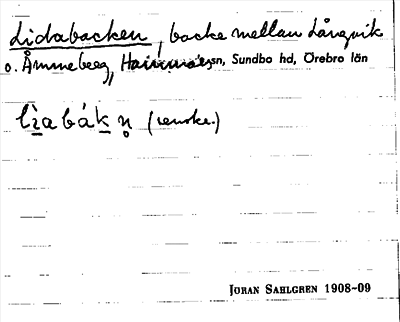 Lidabacken, backe mellan Långvik
o. Åmmeberg, Hammar sn, Sundbo hd, Örebro län
lìabákn̥
JÖRAN SAHLGREN 1908-09